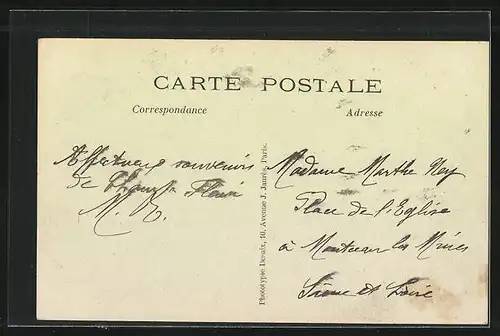 CARTE POSTALE
Correspondance
Adresse
Affectueux souvenirs
de Fleuri
M. R.
Phototypie Desaix, 10, Avenue J. Jaurès, Paris.
Madame Marthe Rey
Place de l'Eglise
à Montceau les Mines
Saône et Loire